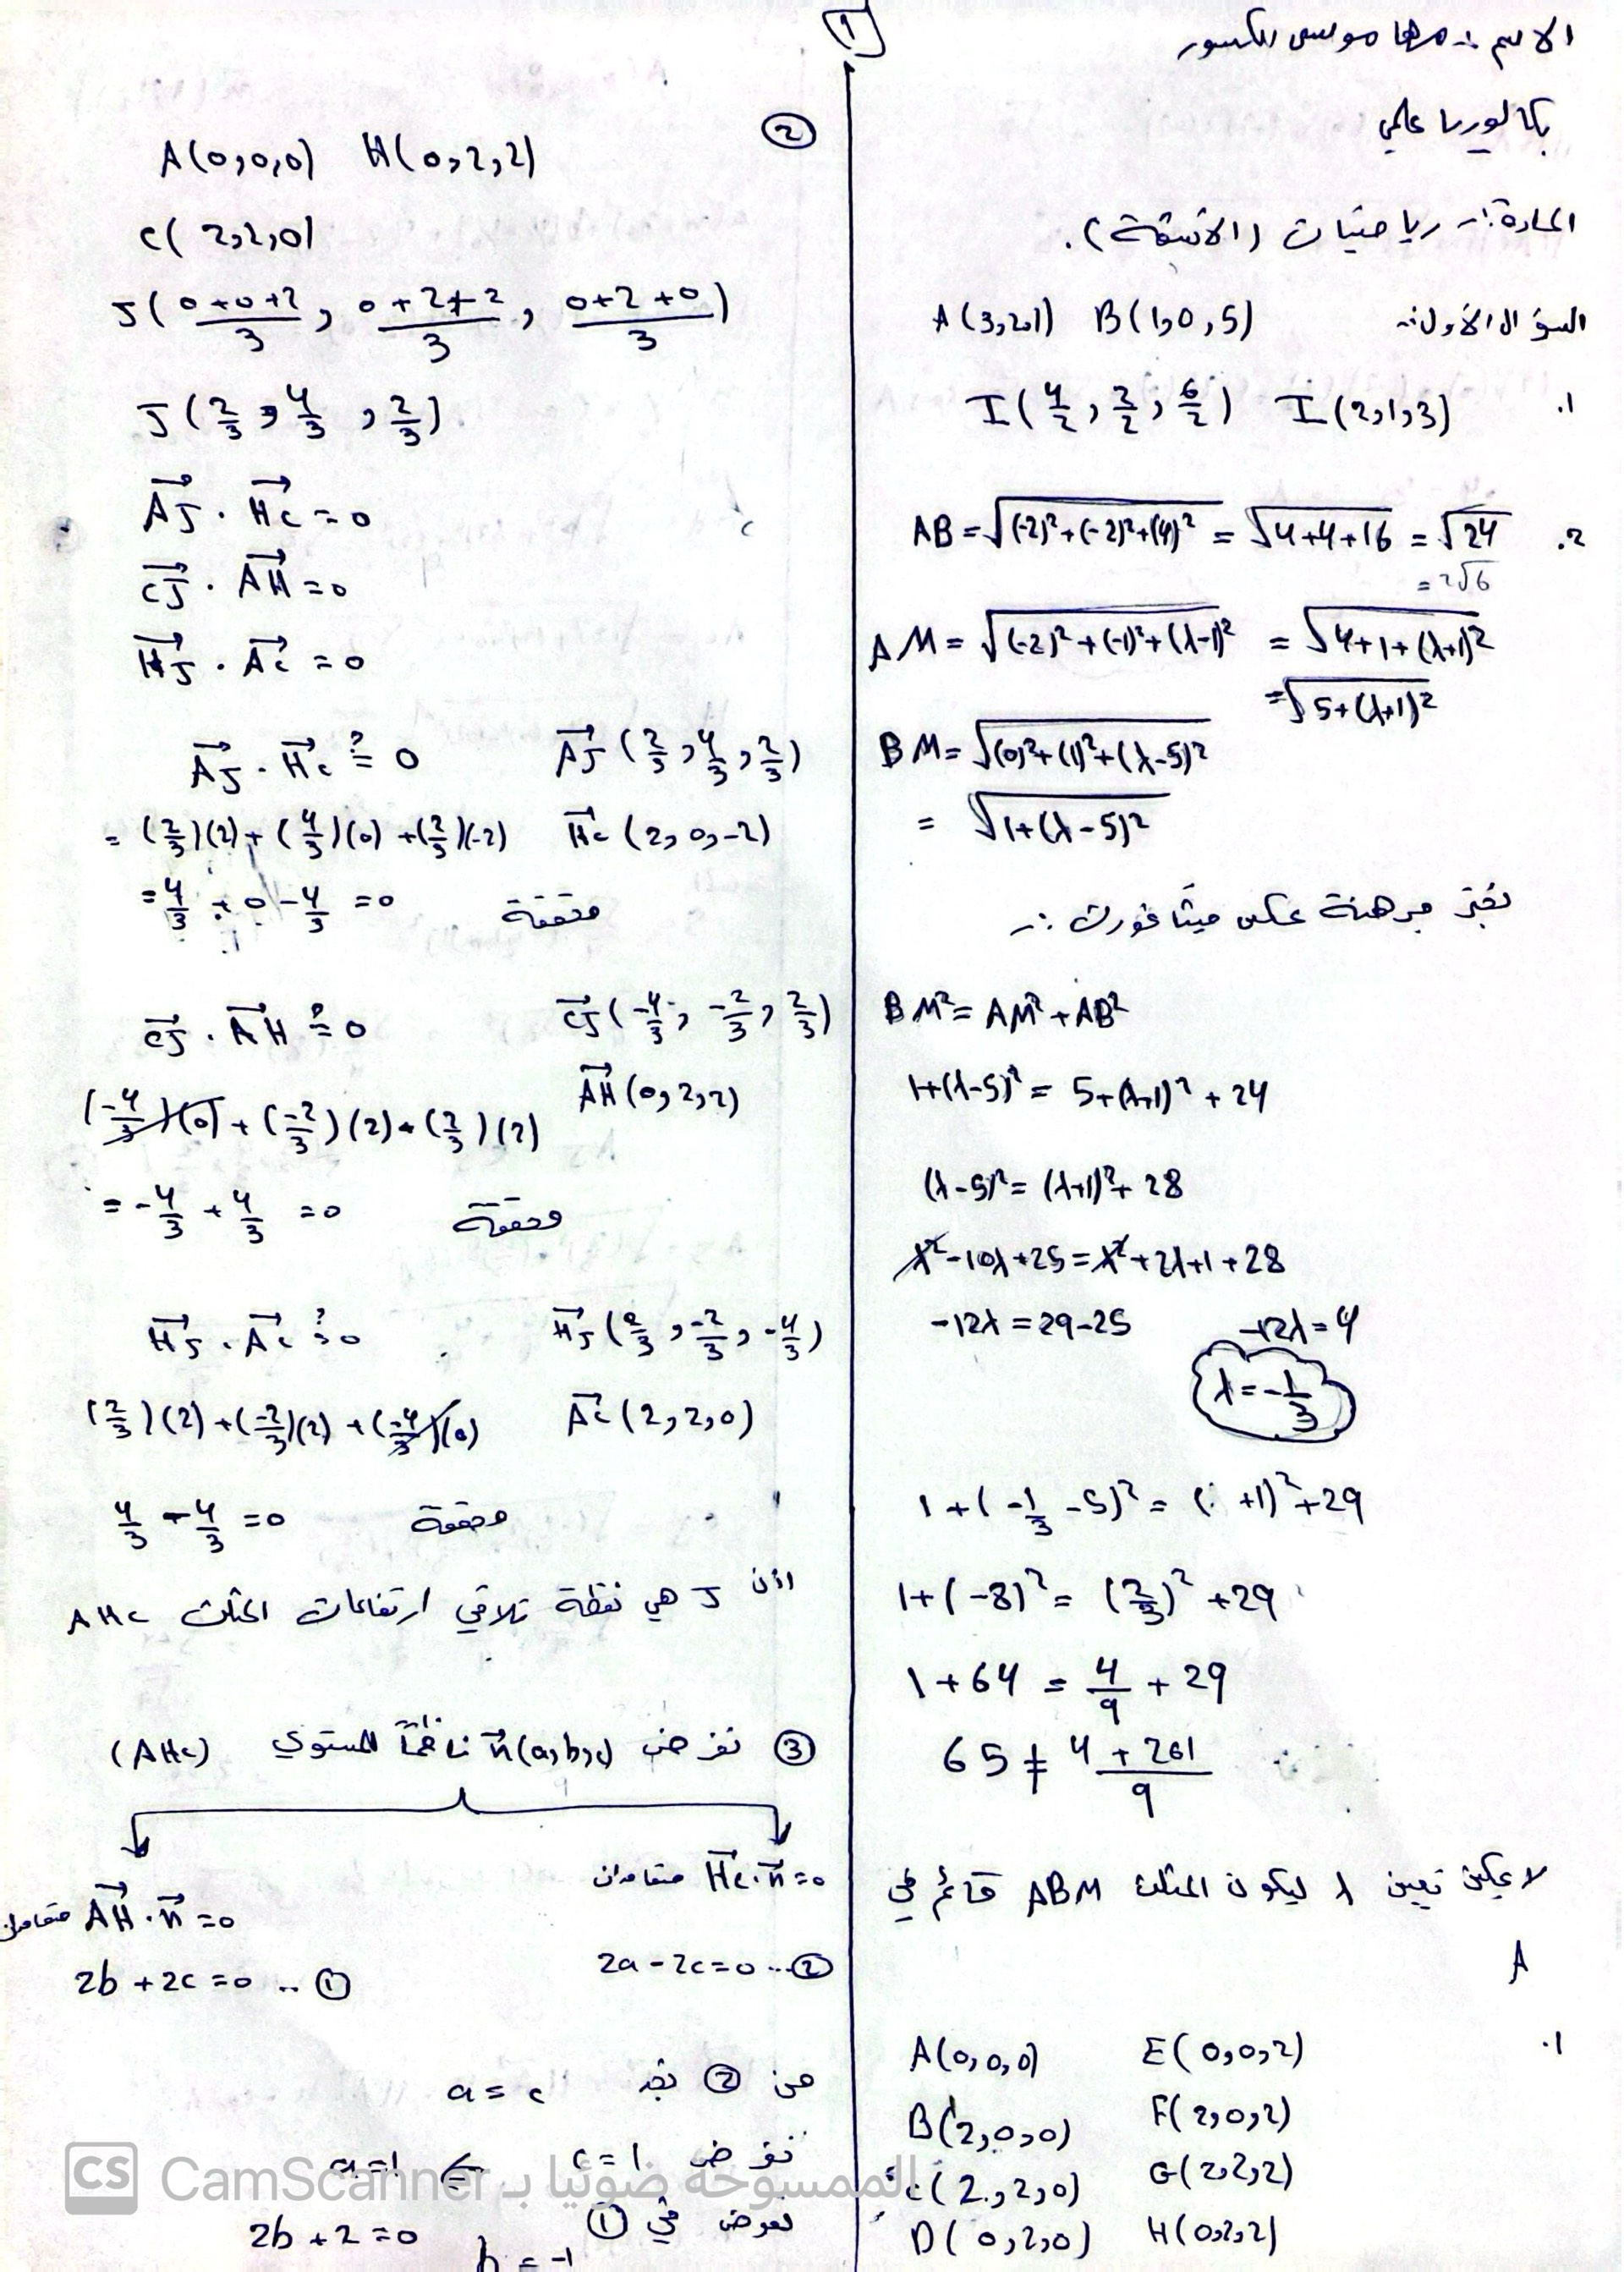 1
الاسم :- مها موسى الكسور
بكالوريا علمي
المادة :- رياضيات (الأشعة).
السؤال الأول :-
A(3,2,1) B(1,0,5)
1. I(4/2, 2/2, 6/2) I(2,1,3)
2. AB = √((-2)²+(-2)²+(4)²) = √(4+4+16) = √24
= 2√6
AM = √((-2)²+(-1)²+(λ-1)²) = √(4+1+(λ+1)²)
= √(5+(λ+1)²)
BM = √((0)²+(1)²+(λ-5)²)
= √(1+(λ-5)²)
نختبر مبرهنة عكس فيثاغورث :-
BM² = AM² + AB²
1+(λ-5)² = 5+(λ+1)² + 24
(λ-5)² = (λ+1)² + 28
λ²-10λ+25 = λ²+2λ+1+28
-12λ = 29-25 -12λ = 4
λ = -1/3
1+(-1/3 -5)² = ( +1)²+29
1+(-8)² = (2/3)² +29
1+64 = 4/9 + 29
65 ≠ (4+261)/9
لا يمكن تعيين λ ليكون المثلث ABM قائم في
A
1. A(0,0,0) E(0,0,2)
B(2,0,0) F(2,0,2)
C(2,2,0) G(2,2,2)
D(0,2,0) H(0,2,2)
②
A(0,0,0) H(0,2,2)
C(2,2,0)
J((0+0+2)/3, (0+2+2)/3, (0+2+0)/3)
J(2/3, 4/3, 2/3)
AJ . HC = 0
CJ . AH = 0
HJ . AC = 0
AJ . HC ?= 0 AJ(2/3, 4/3, 2/3)
= (2/3)(2)+(4/3)(0)+(2/3)(-2) HC(2,0,-2)
= 4/3 + 0 - 4/3 = 0 محققة
CJ . AH ?= 0 CJ(-4/3, -2/3, 2/3)
AH(0,2,2)
(-4/3)(0)+(-2/3)(2)+(2/3)(2)
= -4/3 + 4/3 = 0 محققة
HJ . AC ?= 0 HJ(2/3, -2/3, -4/3)
(2/3)(2)+(-2/3)(2)+(-4/3)(0) AC(2,2,0)
4/3 - 4/3 = 0 محققة
اذن J هي نقطة تلاقي ارتفاعات المثلث AHC
③ نفرض n(a,b,c) ناظماً للمستوي (AHC)
HC.n=0 متعامدان
AH.n=0 متعامدان
2a-2c=0 ..②
2b+2c=0 ..①
من ② نجد a=c
نفرض c=1 ⇐ a=1
نعوض في ①
2b+2=0 b=-1
CS الممسوحة ضوئيا بـ CamScanner